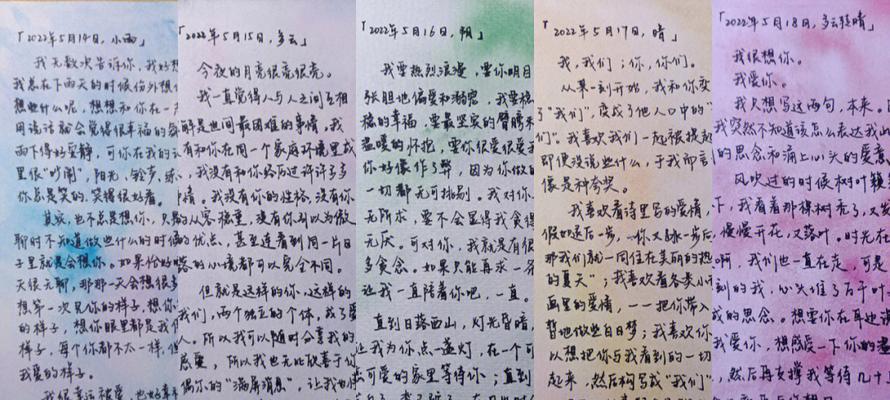 「2022年5月14日，小雨」
我无数次告诉你，我好想
我总在下雨天的时候格外想
想些什么呢，想想和你在一
用说话就会觉得很幸福的
雨下得好安静，可你在我的
里很"吵闹"，阳光，
你总是笑的，笑得很好看。
其实，也不总是想你，只
聊时不知道做些什么的时候
子里就是会想你。如果恰好
天很无聊，那那一天会想很多
想第一次见你的样子，想你
的样子，想你眼里都是我
样子，每个你都不太一样，但
我爱的样子。
「2022年5月15日，多云」
今夜的月亮很亮很亮。
我一直觉得人与人之间互相
解是世间最困难的事情。我
有和你在同一个家庭环境里成
，我没有和你经历过许许多多
情。我没有你的性格，没有你
的从容稳重，没有你引以为傲
的优点，甚至连看到同一片日
落的心境都可以完全不同。
但就是这样的你，这样的
我们，两个独立的个体，成了爱
人。所以我可以随时分享我的
感受，所以我也无比欣喜于你
偶尔的"满屏消息"，让我也
「2022年5月16日，阴」
我要热烈浪漫，要你明目
张胆地偏爱和溺宠，我要稳
稳的幸福，要最坚实的臂膀和
温暖的怀抱，要你很爱很爱
你好像作了弊，因为你做的
一切都无可挑剔。我对你
无所求，要不会显得我贪得
无厌。可对你，我就是有很
多贪念。如果只能再求一
让我一直陪着你吧，一直。
直到日落西山，灯光昏暗，
让我为你点一盏灯，在一个可
可爱的家里等待你；直到
「2022年5月17日，晴」
我，我们；你，你们。
从某一刻开始，我和你变
了"我们"，变成了他人口中的"
们"。我喜欢我们一起被提起
即便没说些什么，于我而言
像是种夸奖。
我喜欢看诗里写的爱情，
假如退后一步，你又
那我们就一同住在美丽的热
的夏天"；我喜欢看各类小
画里的爱情，一一把你带入
暂地做些白日梦；我喜欢你
以想把你与我看到的一切
起来，然后构写成"我们"
「2022年5月18日，多云转晴」
我很想你。
我爱你。
我只想写这两句，本来。
我突然不知道该怎么表达我
的思念和涌上心头的爱意
风吹过的时候树叶簌
下，我看着那棵树秃了，又
慢慢开花，又落叶。时光在
啊，我们也一直在走，可是
刻的我，心头堆了后千叶
成的思念。想要你在耳边
我爱你，想感受一下你的温
，然后再支撑我等待几十